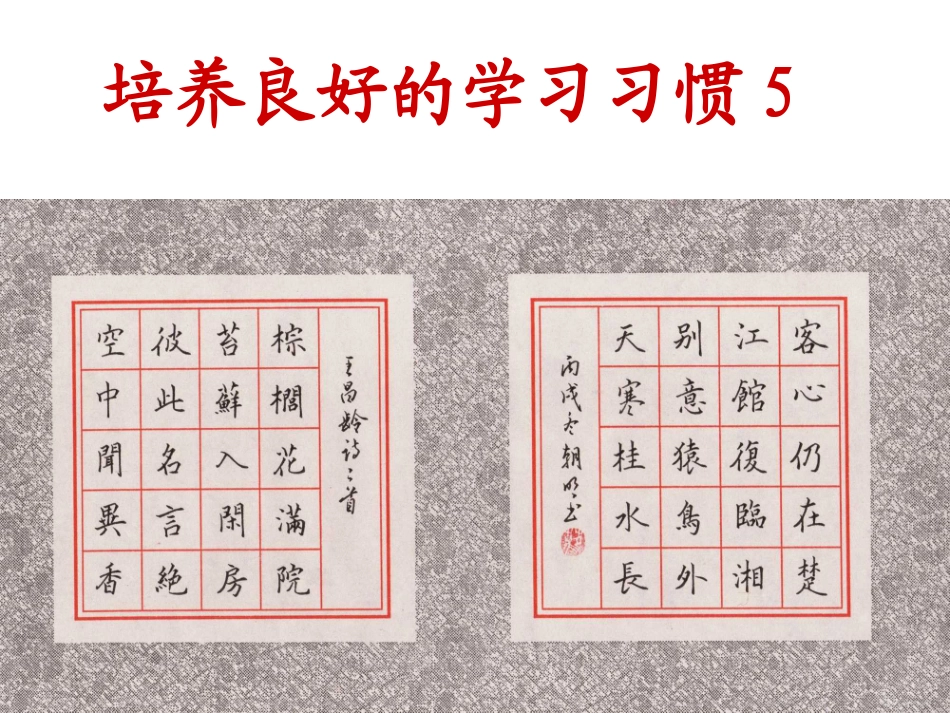 培养良好的学习习惯5
王昌龄诗二首
棕櫚花滿院
苔蘚入閑房
彼此名言絶
空中聞異香
客心仍在楚
江館復臨湘
别意猿鳥外
天寒桂水長
丙戌冬朝明书